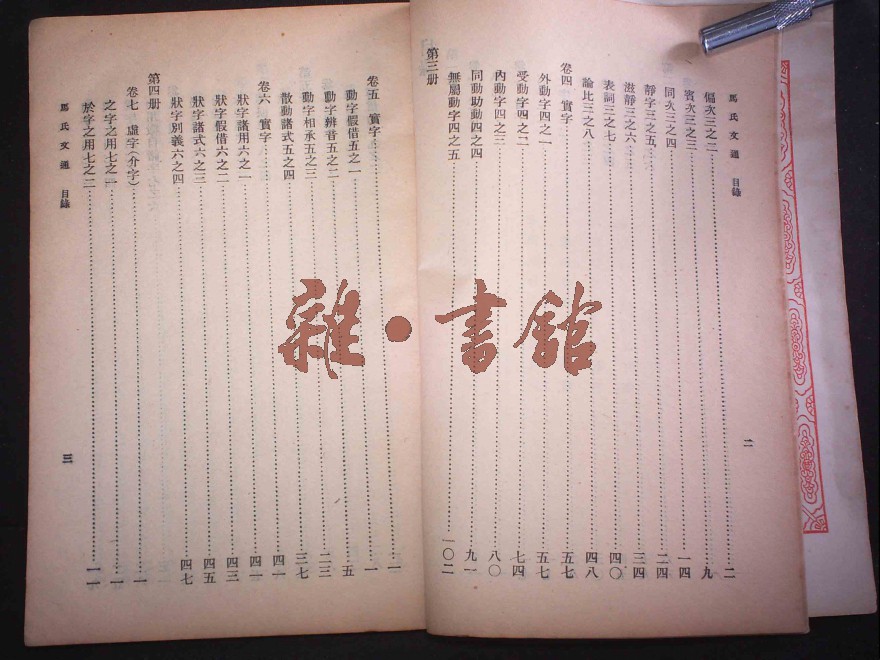 馬氏文通 目錄
偏次三之二……二
賓次三之三……九
同次三之四……一四
靜字三之五……二四
滋靜三之六……三四
表詞三之七……四〇
論比三之八……四八
卷四 實字……五七
外動字四之一……五七
受動字四之二……七四
內動字四之三……八〇
同動助動四之四……九一
無屬動字四之五……一〇二
第三册
二
卷五 實字……一
動字假借五之一……一
動字辨音五之二……五
動字相承五之三……二三
散動諸式五之四……三七
卷六 實字……四一
狀字諸用六之一……四一
狀字假借六之二……四三
狀字諸式六之三……四五
狀字別義六之四……四七
第四册
卷七 虛字(介字)……一
之字之用七之一……一
於字之用七之二……一一
馬氏文通 目錄
三
雜·書館